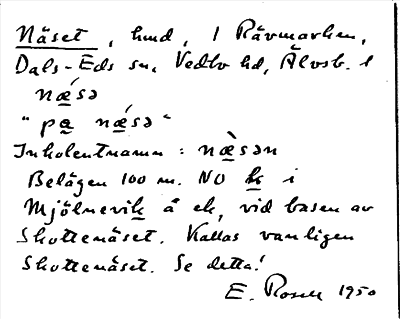 Näset, hmd, i Rävmarken,
Dals-Eds sn, Vedbo hd, Älvsb. l
næ̀sə
"pa næ̀sə"
Inbolentnamn: næ̀sən
Belägen 100 m. NO k i
Mjölnevik å ek, vid basen av
Skottenäset. Kallas vanligen
Skottenäset. Se detta!
E. Rosell 1950